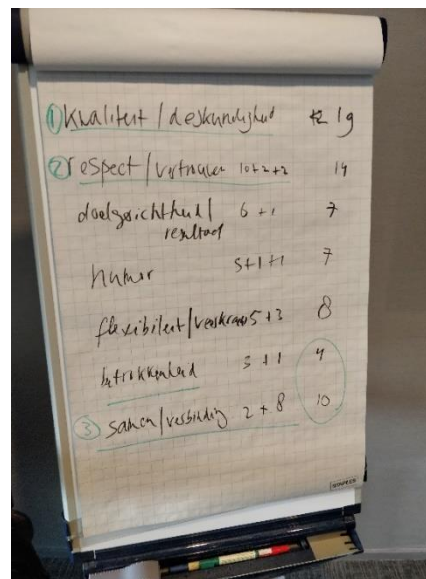 ① Kwaliteit / deskundigheid 19
② respect / vertrouwen 10+2+2 14
doelgerichtheid / 6 +1 7
resultaat
humor 5+1+1 7
flexibiliteit / 5 +3 8
betrokkenheid 3 +1 4
③ samen / verbinding 2 + 8 10
STAPLES